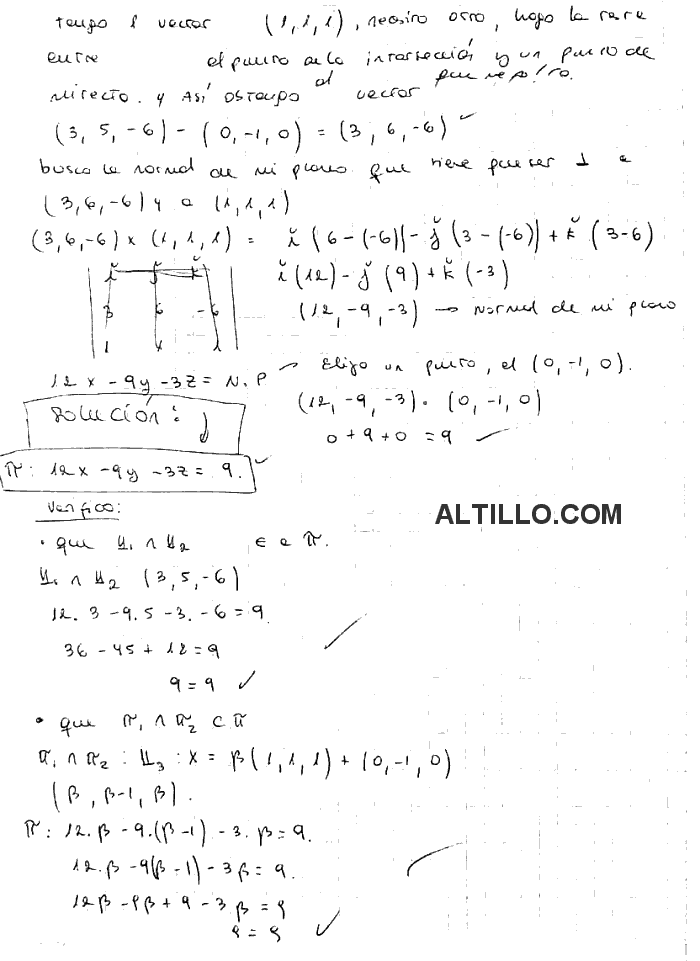 tengo 1 vector (1,1,1), necesito otro, hago la resta
entre el punto de la intersección y un punto de
mi recta. y Así obtengo el vector que me falta.
(3, 5, -6) - (0, -1, 0) = (3, 6, -6) ✓
busco la normal de mi plano que tiene que ser ⊥ a
(3,6,-6) y a (1,1,1)
(3,6,-6) × (1,1,1) = ǐ (6-(-6)) - ǰ (3-(-6)) + ǩ (3-6)
ǐ ǰ ǩ ǐ (12) - ǰ (9) + ǩ (-3)
3 6 -6 (12, -9, -3) → Normal de mi plano
1 1 1
12x - 9y - 3z = N.P → Elijo un punto, el (0, -1, 0).
(12, -9, -3) • (0, -1, 0)
solución: 0 + 9 + 0 = 9 ✓
π: 12x - 9y - 3z = 9. ✓
Verifico:
ALTILLO.COM
• que L₁ ∩ L₂ ∈ a π.
L₁ ∩ L₂ (3, 5, -6)
12. 3 - 9. 5 - 3. -6 = 9
36 - 45 + 18 = 9
9 = 9 ✓
• que π₁ ∩ π₂ ⊂ π
π₁ ∩ π₂ : L₃ : X = β(1,1,1) + (0,-1,0)
(β, β-1, β).
π: 12.β - 9.(β-1) - 3.β = 9.
12.β - 9(β-1) - 3β = 9.
12β - 9β + 9 - 3β = 9
9 = 9 ✓